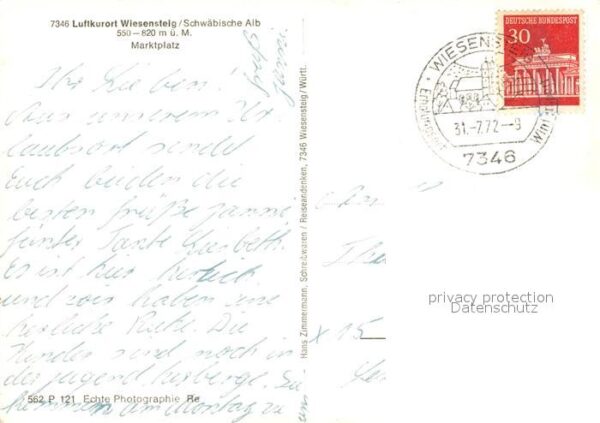 7346 Luftkurort Wiesensteig / Schwäbische Alb
550–820 m ü. M.
Marktplatz
Ihr Lieben!
Aus unserem Ur
laubsort sendet
Euch beiden die
besten Grüße
Tante Liesbeth
Es ist hier herrlich
und wir haben eine
herrliche Ruhe. Die
Kinder sind noch in
der Jugendherberge. Sie
kommen am Montag zu
uns
Gruß
562 P. 121 Echte Photographie Re
Hans Zimmermann, Schreibwaren / Reiseandenken, 7346 Wiesensteig/Württ.
DEUTSCHE BUNDESPOST
30
WIESENSTEIG
31.-7.72--9
7346
privacy protection
Datenschutz